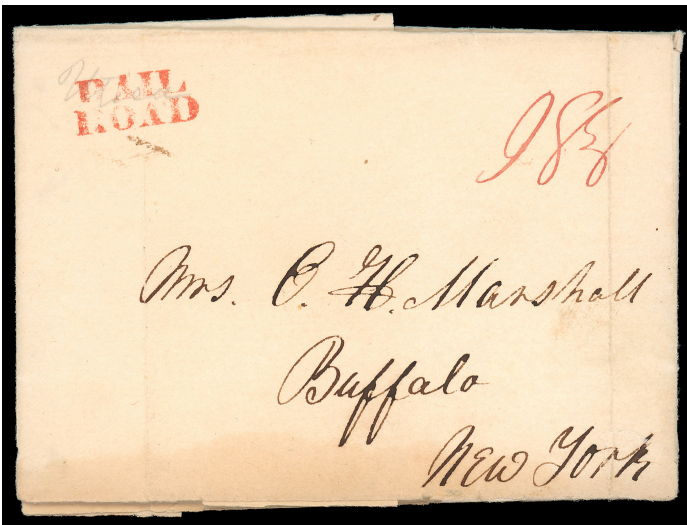 RAIL
ROAD
18¾
Mrs. O. H. Marshall
Buffalo
New York